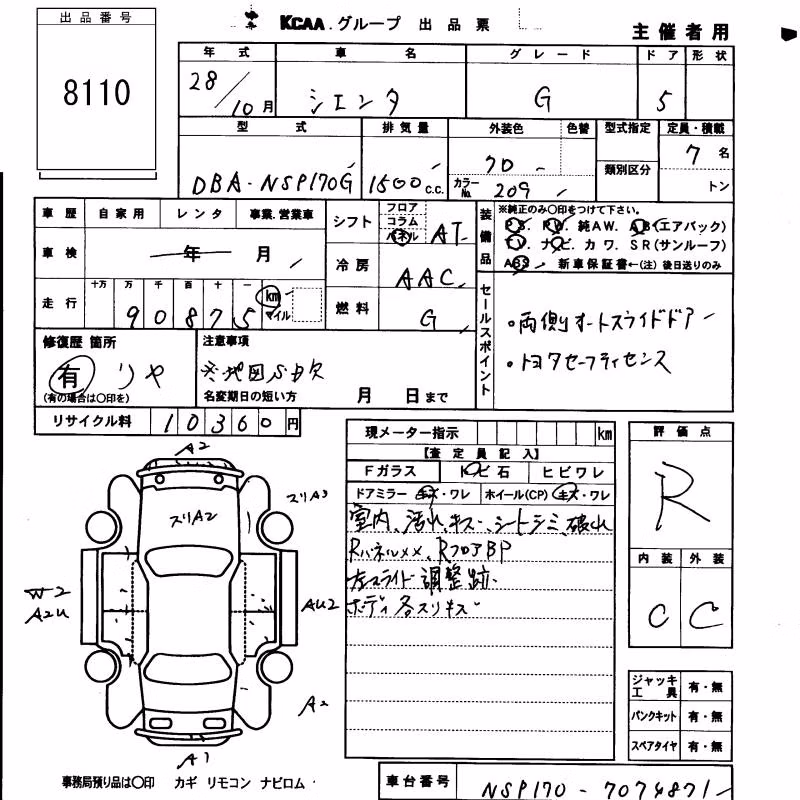 出品番号
8110
KCAA.グループ 出品票
主催者用
年式 車名 グレード ドア 形状
28/10月 シエンタ G 5
型式 排気量 外装色 色替 型式指定 定員・積載
DBA-NSP170G 1500c.c. 70 カラーNo. 209 類別区分 7名
トン
車歴 自家用 レンタ 事業.営業車
車検 年 月
走行 十万 万 千 百 十 一 km マイル
90875
シフト フロア コラム パネル AT
冷房 AAC
燃料 G
装備品
※純正のみ〇印をつけて下さい。
P.S. P.W. 純AW. A.B(エアバック)
T.V. ナビ カワ. SR(サンルーフ)
ABS 新車保証書←(注)後日送りのみ
セールスポイント
・両側オートスライドドア
・トヨタセーフティセンス
修復歴 箇所
有 リヤ
(有の場合は〇印を)
注意事項
※地図SD欠
名変期日の短い方 月 日まで
リサイクル料 10360円
現メーター指示 km
【査定員記入】
Fガラス トビ石 ヒビワレ
ドアミラー キズ・ワレ ホイール(CP) キズ・ワレ
室内、汚れ、キズ、シートシミ、破れ
Rパネルメメ、RフロアBP
左スライド調整跡
ボディ各スリキズ
評価点
R
内装 外装
C C
ジャッキ工具 有・無
パンクキット 有・無
スペアタイヤ 有・無
A2
スリA2
スリA3
W2
A2U
AU2
A2
A1
事務局預り品は〇印 カギ リモコン ナビロム
車台番号 NSP170-7074871